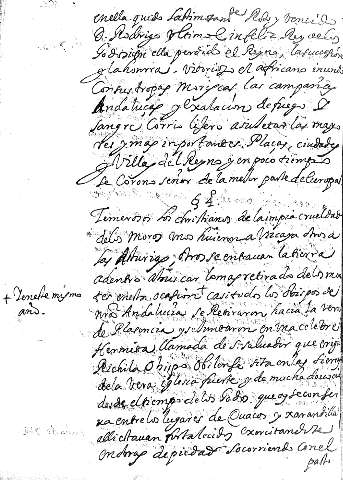 en ella quedo lastimosam.te Roto y vencido
D. Rodrigo Vltimo infeliz Rey de los
Godos en ella perdido el Reyno, la sucesion
y la honrra. Vitorioso el africano inundo
Con sus tropas Moriscas, las campañas
Andaluças y Exalacion de fuego y
sangre Corrio lijero a sujetar las mayo
res y mas inportantes Plaças, ciudades
y Villas del Reyno y en poco tiempo
se Corono señor de la mejor parte de Europa
§ 2
Temerosos los christianos de la inpia crueldad
de los Moros unos huieron a Vizcaya otros a
las Asturias, otros se entravan la tierra
adentro a buscar lo mas retirado de los mon
tes en esta ocasion casi todos los Obispos de
nra Andalucia se Retiraron hacia la vera
de Plasencia y se juntaron en una celebre
Hermita llamada de S. Salvador que erigio
Pichila Obispo sita en las sierras
de la vera Iglesia fuerte y de mucha
desde el tiempo de los Godos, que oy se conser
va entre los lugares de Cuacos y xarandilla
alli estavan fortalecidos exercitandose
en obras de piedad socorriendo con el
past
+ en este mismo
año.